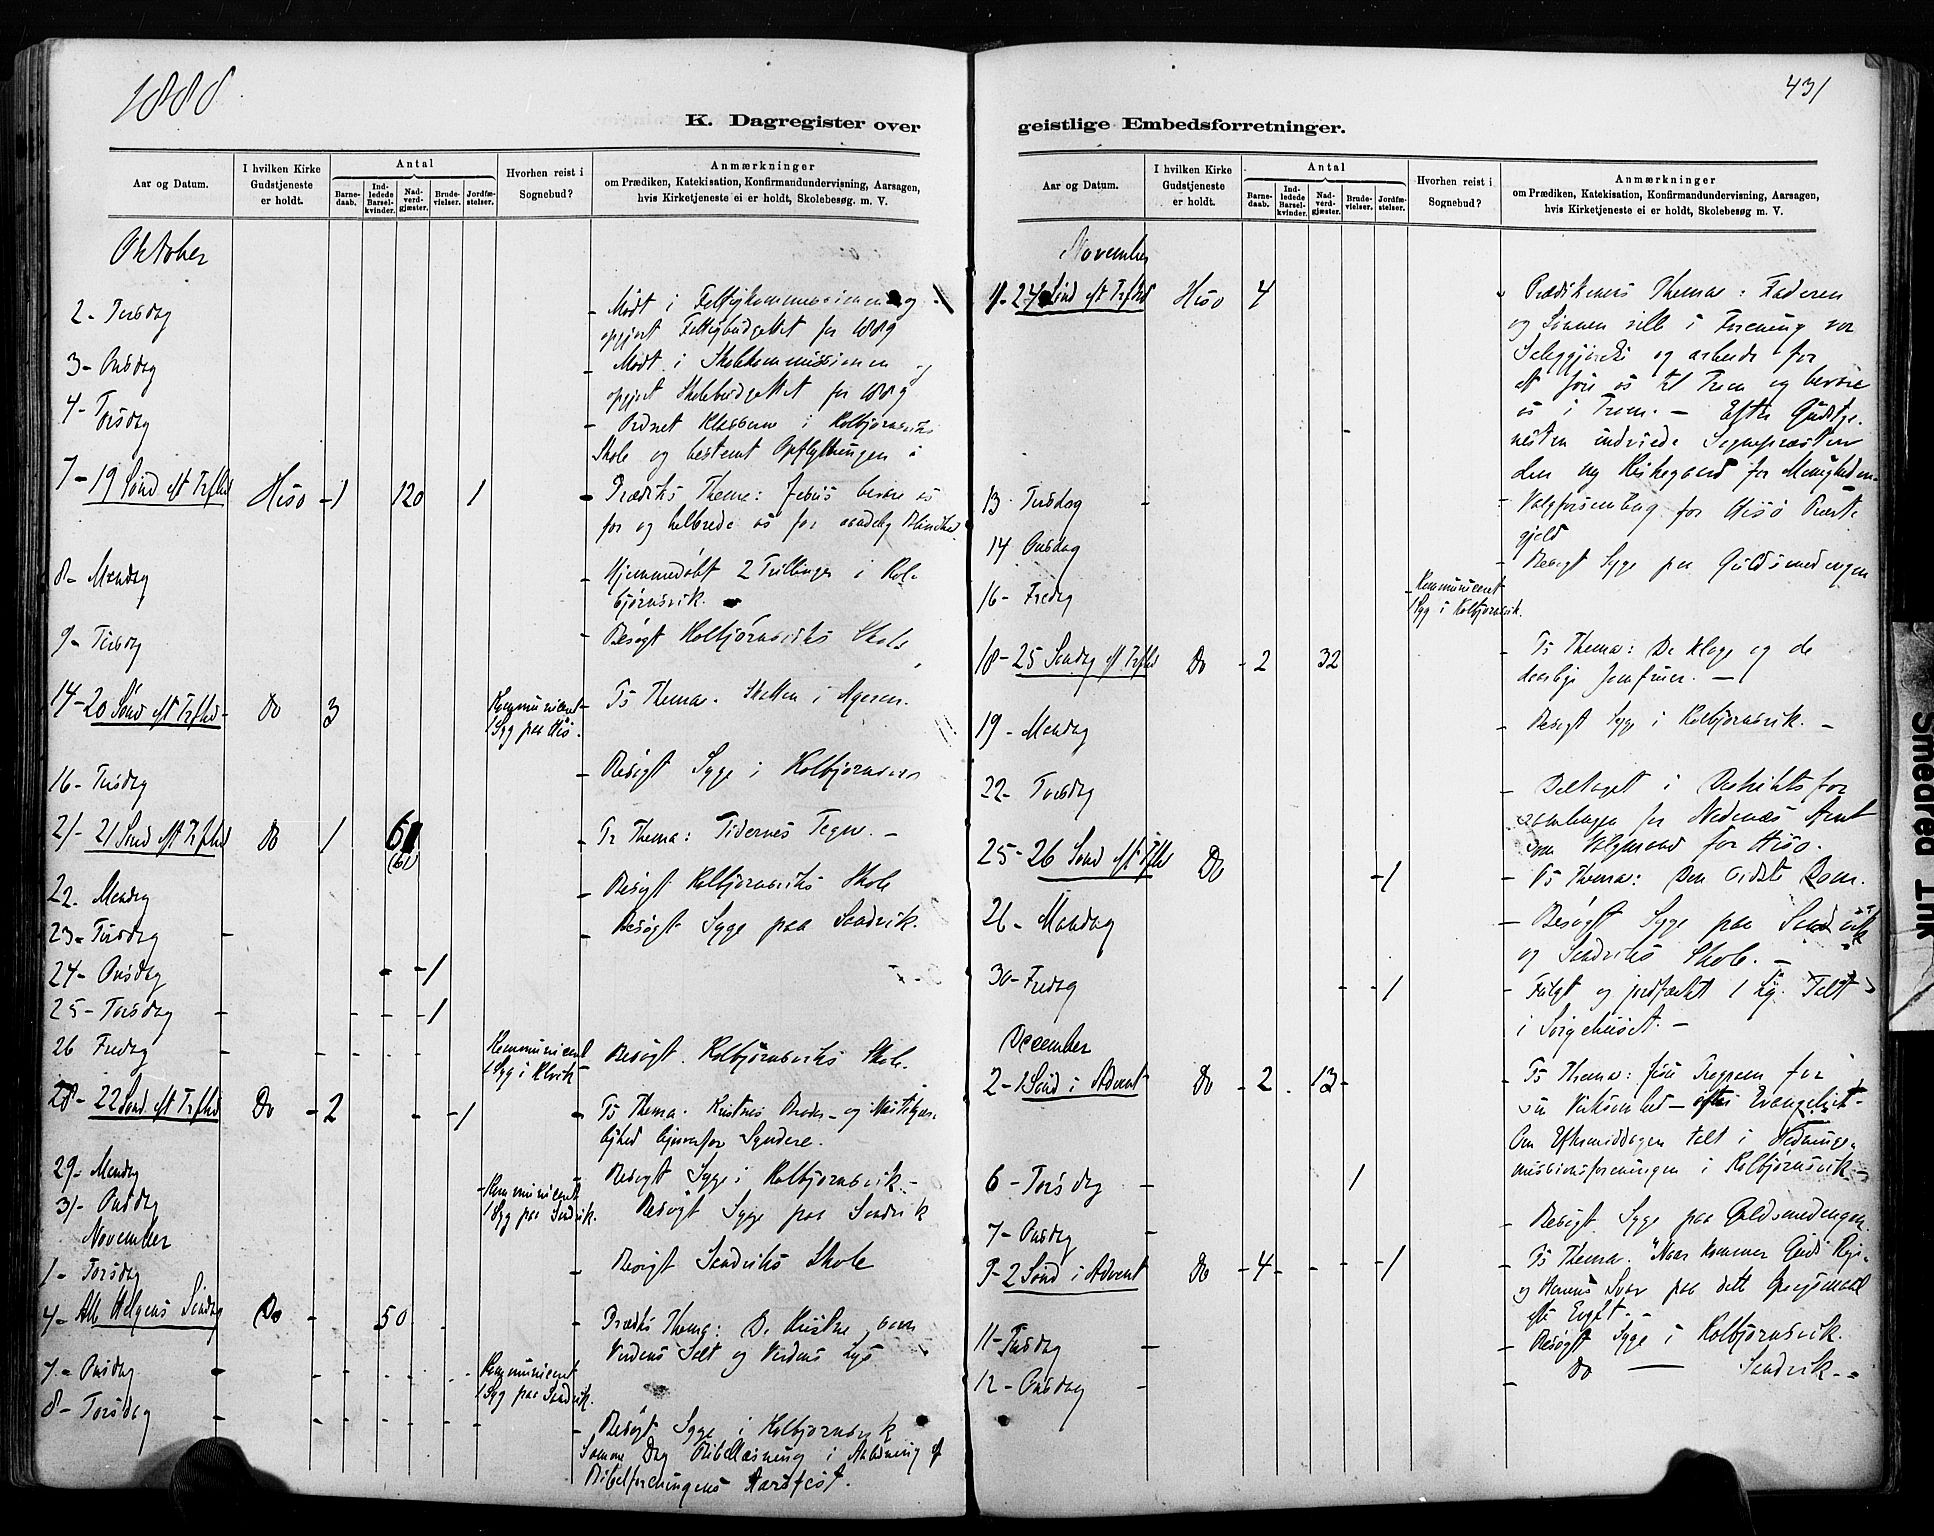 1888
K. Dagregister over
Aar og Datum.
I hvilken Kirke Gudstjeneste er holdt.
Antal
Barne-daab.
Ind-ledede Barsel-kvinder.
Nad-verd-gjæster.
Brude-vielser.
Jordfæ-stelser.
Hvorhen reist i Sognebud?
Anmærkninger
om Prædiken, Katekisation, Konfirmandundervisning, Aarsagen,
hvis Kirketjeneste ei er holdt, Skolebesøg. m. V.
Oktober
2 - Tirsdag - Mødt i Fattigkommissionen og
opgjort Fattigbudgettet for 1889
3 - Onsdag - Mødt i Skolekommissionen og
opgjort Skolebudgettet for 1889
4 - Torsdag - Ordnet Klasserne i Kolbjørnsviks
Skole og bestemt Opflytningen i
7 - 19 Sønd eft Trefhd Hisø - 1 120 1 - Prædiks Thema: Jesus bevare os
for og helbrede os for aandelig Blindhed
8 - Mandag - Hjemmedøbt 2 Tvillinger i Kol-
bjørnsvik.
9 - Tirsdag - Besøgt Kolbjørnsviks Skole
14 - 20 Sønd eft Trefhd - Do 3 Kommunicent - Ps Thema. Skatten i Ageren.
1 Syg paa Hisø.
16 - Tirsdag - Besøgt Syge i Kolbjørnsvik
21 - 21 Sønd eft Trefhd Do 1 61 - Pr Thema: Tidernes Tegn. -
(61)
22. Mandag - Besøgt Kolbjørnsviks Skole
23 - Tirsdag - - Besøgt Syge paa Sandvik.
24 - Onsdag - - 1
25 - Torsdag - - - - 1
26 Fredag - - - - - Kommunicent - Besøgt Kolbjørnsviks Skole.
1 Syg i Klvik
28 - 22 Sønd eft Trefhd Do - 2 - - 1 - Ps Thema. Kristnes Broder- og Næstekjær-
lighed ligeoverfor Syndere.
29 - Mandag - Besøgt Syge i Kolbjørnsvik -
31 - Onsdag - Kommunicent Besøgt Syge paa Sandvik
1 Syg paa Sandvik.
November
1 - Torsdag - Besøgt Sandviks Skole
4 - Alle Helgens Søndag Do - 50 - - Prædiks Thema: De Kristne som
Verdens Salt og Verdens Lys
7 - Onsdag - - - - - - Kommunicent
1 Syg paa Sandvik.
8 - Torsdag - - - - - - - Besøgt Syge i Kolbjørnsvik
Samme Dag Bibellæsning i Anledning af
Bibelforeningens Aarsfest.
431
geistlige Embedsforretninger.
Aar og Datum.
I hvilken Kirke Gudstjeneste er holdt.
Antal
Barne-daab.
Ind-ledede Barsel-kvinder.
Nad-verd-gjæster.
Brude-vielser.
Jordfæ-stelser.
Hvorhen reist i Sognebud?
Anmærkninger
om Prædiken, Katekisation, Konfirmandundervisning, Aarsagen,
hvis Kirketjeneste ei er holdt, Skolebesøg m. V.
November
11 - 24 Sønd eft Trefhd Hisø 4 Prædikenens Thema: Faderen
og Sønnen ville i Forening vor
Saliggjørelse og arbeide for
at føre os til Troen og bevare
os i Troen. - Efter Gudstje-
nesten indviede Sognepræsten
den ny Kirkegaard for Menigheden.
13 Tirsdag - - Valgforsamling for Hisø Præste-
gjeld
14 Onsdag - Besøgt Syge paa Guldsmedengen
16 - Fredag - Kommunicent
1 Syg i Kolbjørnsvik.
18 - 25 Søndag eft Trefhd Do - 2 32 - Ps Thema: De kloge og de
daarlige Jomfruer. -
19 - Mandag - Besøgt Syge i Kolbjørnsvik. -
22 - Torsdag - Deltaget i Distriktsfor-
samlingen for Nedenæs Amt
som Valgmand for Hisø.
25 - 26 Sønd eft Trefhd Do - 1 - Ps Thema: Den sidste Dom.
26 - Mandag - Besøgt Syge paa Sandvik
og Sandviks Skole. -
30 - Fredag - - 1 - Fulgt og jordfæstet 1 Lig. Talt
i Sørgehuset. -
December
2 - 1 Sønd i Advent Do - 2 . 13 - - Ps Thema: Jesu Program for
sin Virksomhed - efter Evangeliet -
Om Eftermiddagen talt i Hednings-
missionsforeningen i Kolbjørnsvik -
6 - Torsdag - 1
7 - Onsdag - - Besøgt Syge paa Guldsmedengen
9 - 2 Sønd i Advent Do - 4 - - - 1 - Ps Thema. "Naar kommer Guds Rige"
og Herrens Svar paa dette Spørgsmaal
efter Evglt. -
11 - Tirsdag - - Besøgt Syge i Kolbjørnsvik.
12 - Onsdag - - Do — Sandvik - -
Smeared Ink